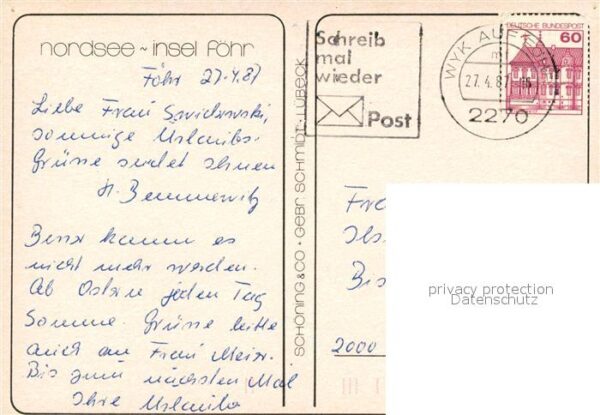 nordsee ~ insel föhr
Föhr 27.4.87
Liebe Frau
sonnige Urlaubs-
Grüsse sendet Ihnen
H. Bennewitz
Besser kann es
nicht mehr werden.
Ab Ostern jeden Tag
Sonne. Grüsse bitte
auch an Frau Meier.
Bis zum nächsten Mal
Ihre Urlaub
SCHÖNING & CO · GEBR. SCHMIDT · LÜBECK
Schreib
mal
wieder
Post
WYK AUF FÖHR
27.4.87
2270
DEUTSCHE BUNDESPOST
60
Fra
Ils
Bis
2000
privacy protection
Datenschutz